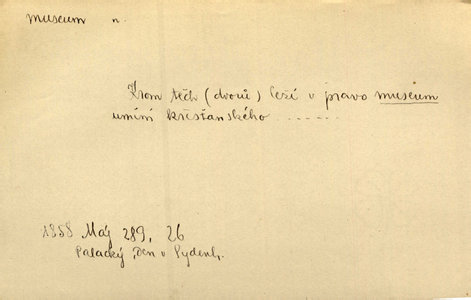 museum n.
Krom těch (dvorů) leží v pravo museum
umím křesťanského .......
1858 Máj 289, 26
Palacký, Den v Sydenh.